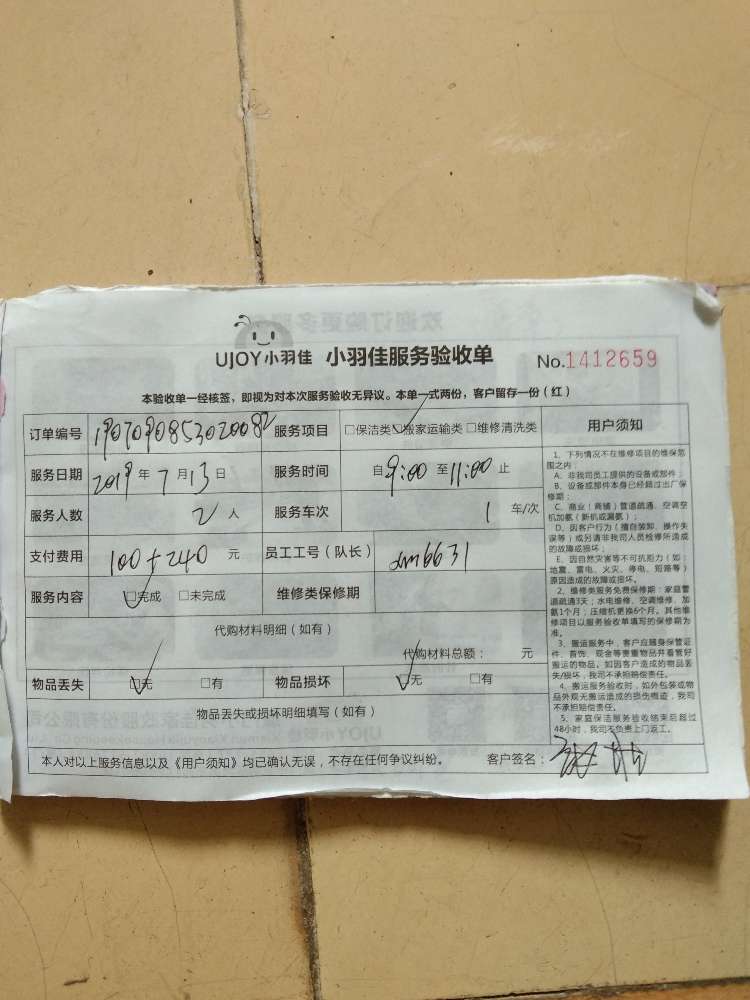 UJOY小羽佳 小羽佳服务验收单 No.1412659
本验收单一经核签，即视为对本次服务验收无异议。本单一式两份，客户留存一份（红）
订单编号 190709085302008 服务项目 □保洁类 ☑搬家运输类 □维修清洗类
服务日期 2019年7月13日 服务时间 自9:00至11:00止
服务人数 2人 服务车次 1车/次
支付费用 100+240元 员工工号（队长） dm6631
服务内容 ☑完成 □未完成 维修类保修期
代购材料明细（如有）
代购材料总额： 元
物品丢失 ☑无 □有 物品损坏 ☑无 □有
物品丢失或损坏明细填写（如有）
本人对以上服务信息以及《用户须知》均已确认无误，不存在任何争议纠纷。 客户签名：
用户须知
1、下列情况不在维修项目的维保范
围之内：
A、非我司员工提供的设备或部件；
B、设备或部件本身已经超过出厂保
修期；
C、商业（商铺）管道疏通、空调空
机加氨（新机或漏氨）；
D、因客户行为（擅自装卸、操作失
误等）或另请非我司人员检修所造成
的故障或损坏；
E、因自然灾害等不可抗拒力（如：
地震、雷电、火灾、停电、短路等）
原因造成的故障或损坏。
2、维修类服务免费保修期：家庭管
道疏通3天；水电维修、空调维修、加
氨1个月；压缩机更换6个月。其他维
修项目以服务验收单填写的保修期为
准。
3、搬运服务中，客户应随身保管证
件、首饰、现金等贵重物品并看管好
搬运的物品。如因客户造成的物品丢
失/损坏，我司不承担赔偿责任。
4、搬运服务验收时，如外包装或物
品外观无搬运造成的损伤痕迹，我司
不承担赔偿责任。
5、家庭保洁服务验收结束后超过
48小时，我司不负责上门返工。